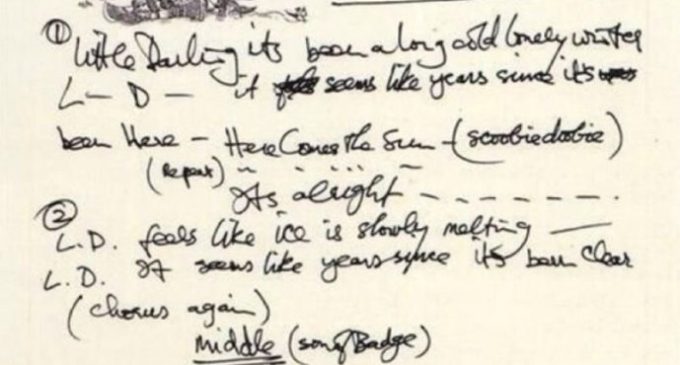 ① Little Darling its been a long cold lonely winter
L — D — it seems like years since it's
been Here – Here Comes the Sun – (scoobiedoobie)
(Repeat) " " " " "
Its alright – – – – – – – .
② L.D. feels like ice is slowly melting —
L.D. It seems like years since its been clear
(chorus again)
middle (song Badge)